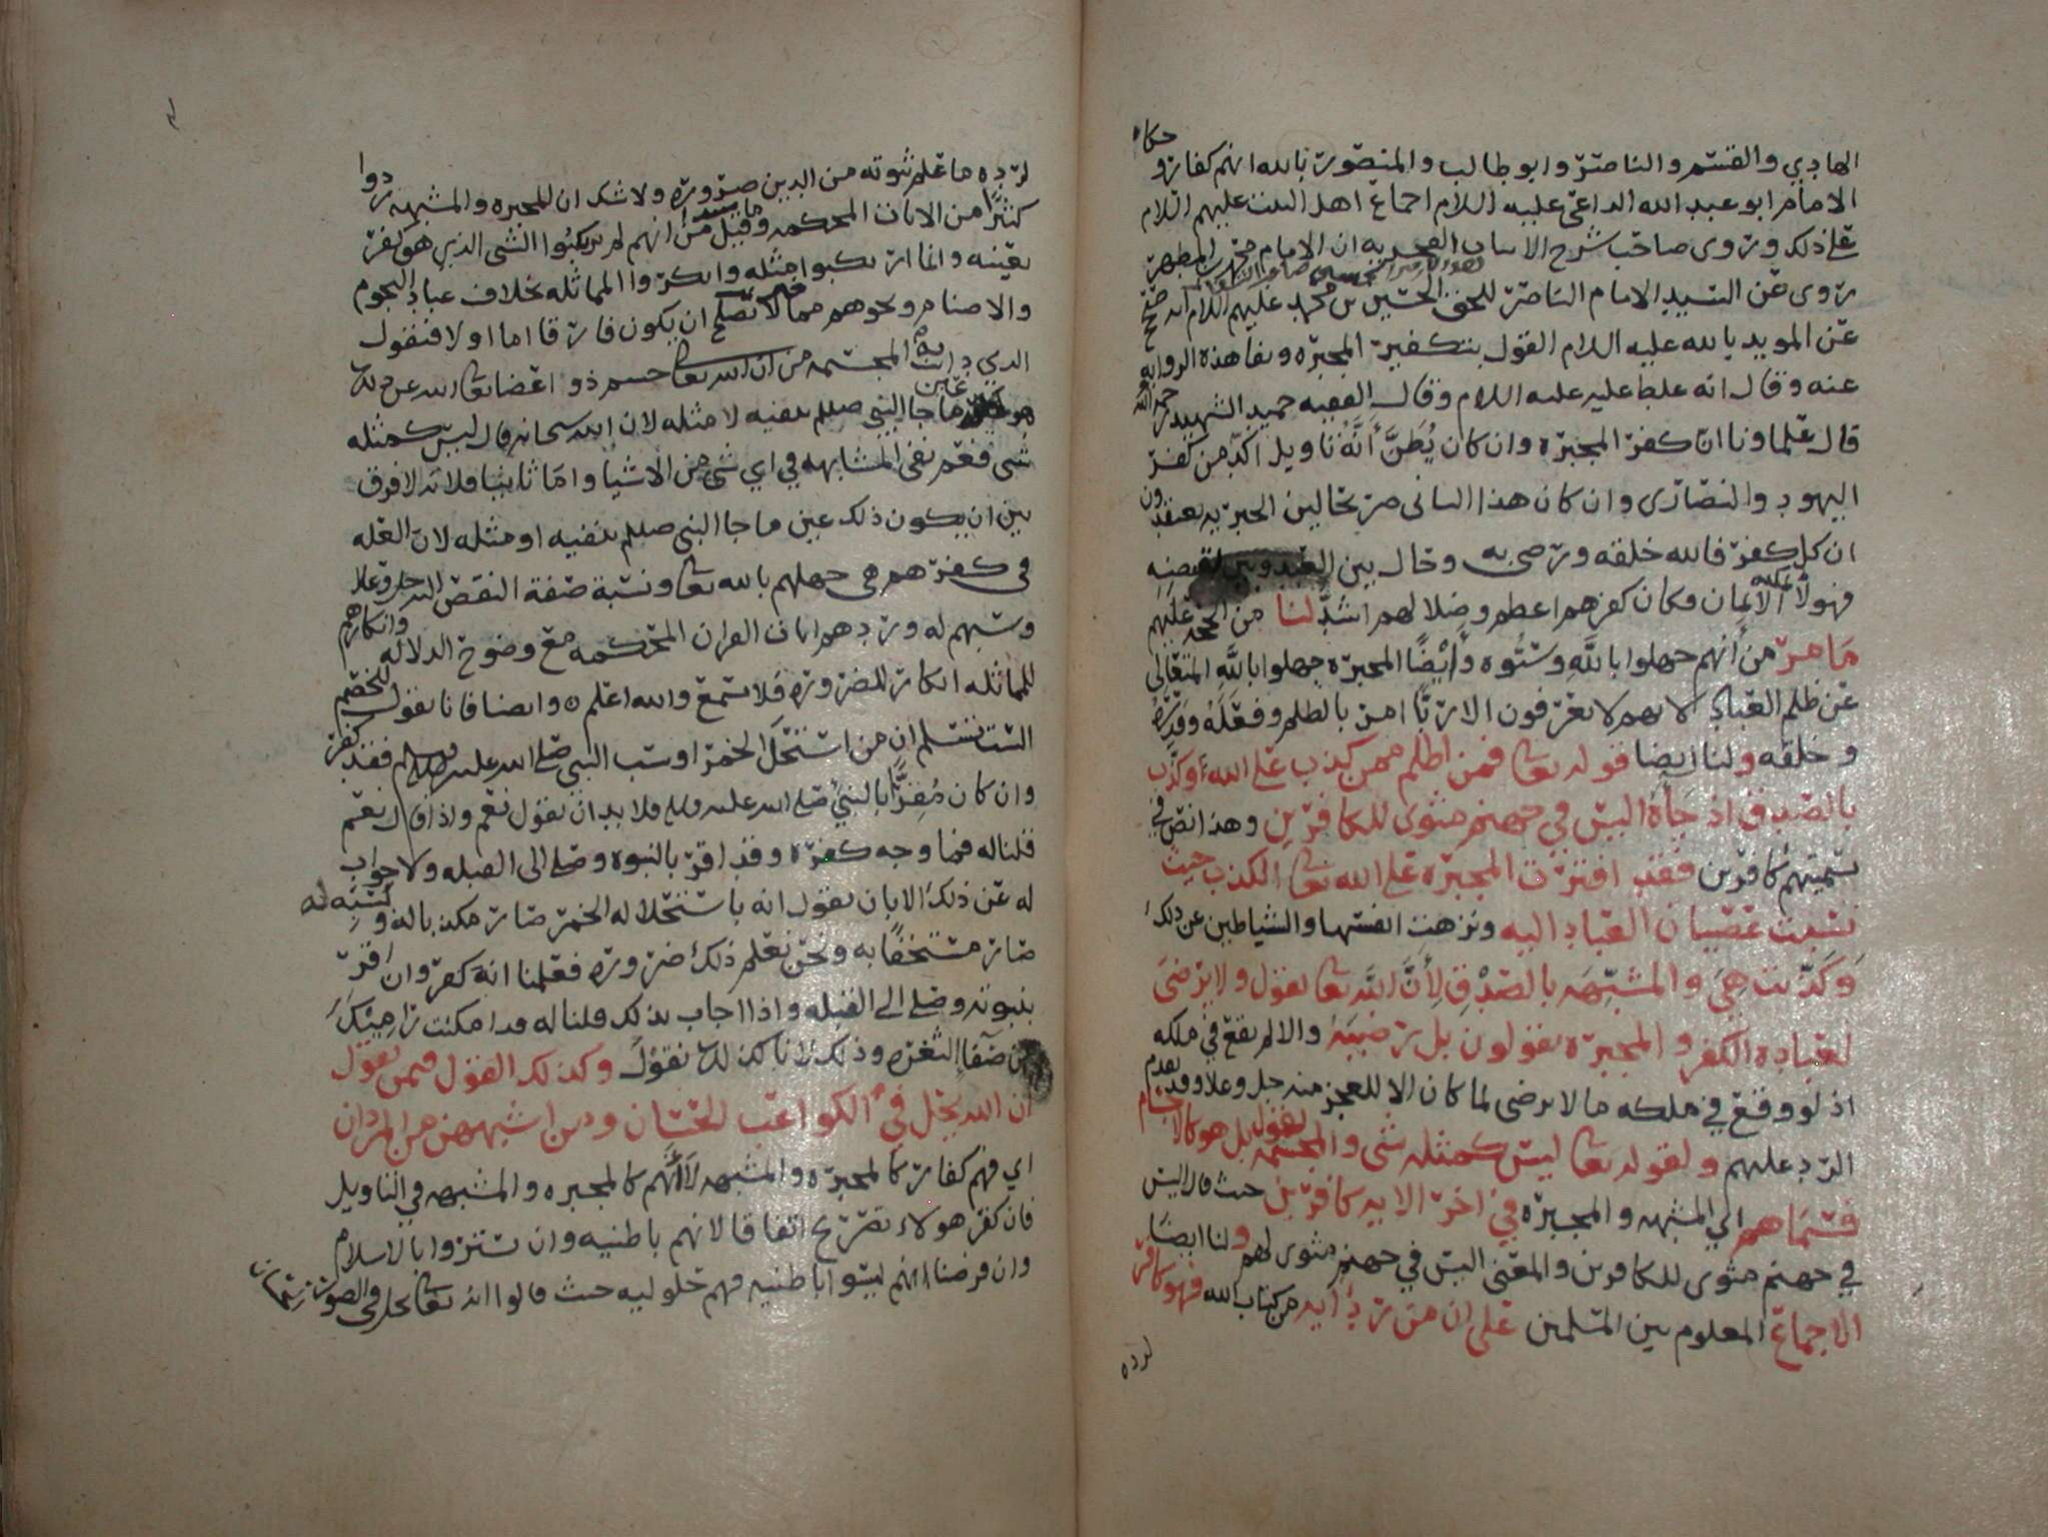 الهادي والقسم والناصر وابو طالب والمنصور بالله انهم كفار وحكاه
الامام ابو عبد الله الداعي عليه السلام اجماع اهل البيت عليهم السلام
على ذلك وروى صاحب شرح الابيات الفخريه ان الامام محمد بن المطهر
روى عن السيد الامام الناصر للحق الحسين بن محمد عليهم السلام انه صح
عن المويد بالله عليه السلام القول بتكفير المجبره ونفا هذه الروايه
عنه وقال انه غلط عليه عليه السلام وقال الفقيه حميد الشهيد رحمه الله
قال علماونا ان كفر المجبره وان كان يُظنّ أَنَّه تاويل اكد من كفر
اليهود والنصارى وان كان هذا الثاني صريحا لان الجبريه يعتقدون
ان كل كفر فالله خلقه ورضي به وحال بين العبد وبين نقيضه
فهولاء عليه الايمان فكان كفرهم اعظم وضلالهم اشد لنا من الحجه عليهم
مَا مر من أنهم جهلوا باللَّهِ وسبُّوه وأَيْضًا المجبره جهلوا باللَّه المتعالي
عن ظلم العباد لانهم لا يعرفون الا ربًّا امر بالظلم وفعَلَهُ وقدّرهُ
وخلقه ولنا ايضا قوله تعالى فمن اظلم ممن كذب على الله وكذّب
بالصدق اذ جَاءَهُ اليس في جهنم مثوى للكافرين وهذا نص في
تسميتهم كافرين فقد افترت المجبره على الله تعالى الكذب حيث
نسبت عصيان العباد اليه ونزهت انفسها والشياطين عن ذلك
وَكَذّبت هِيَ والمشَبِّهَه بالصِدْقِ لِأَنَّ اللَّه تعالى يقول ولا يرضى
لعباده الكفر والمجبره يقولون بل رَضِيَهُ والا لم يقع في ملكه
اذ لو وقع في ملكه ما لا يرضى لما كان الا للعجز منه جل وعلا وقد تقدم
الرد عليهم ولقوله تعالى ليس كمثله شي والمجسمه تقول بل هو كالاجسام
فسماهم اي المشبهه والمجبره في اخر الايه كافرين حيث قال اليس
في جهنم مثوى للكافرين والمعنى اليس في جهنم مثوى لهم ولنا ايضًا
الاجماع المعلوم بين المسلمين على ان من ردّ أيه من كتاب الله فهو كافر
لرده
لرده ما علم ثبوته من الدين ضروره ولا شك ان المجبره والمشبهه ردوا
كثيرًا من الايات المحكمه وقيل من انهم لم يرتكبوا الشي الذي هو كفر
بعينه وانما ارتكبوا مثله وانكروا المماثله بخلاف عباد النجوم
والاصنام ونحوهم مما لا تصلح ان يكون فارقا اما اولا فنقول
الذي دانت به المجسمه من ان الله تعالى جسم ذو اعضا تعالى الله عن ذلك
هو عين ما جا النبي صلعم بنفيه لا مثله لان الله سبحانه قال ليس كمثله
شي فعم نفي المشابهه في اي شي من الاشيا واما ثانيا فلانه لا فرق
بين ان يكون ذلك عين ما جا النبي صلعم بنفيه او مثله لان العله
في كفرهم هي جهلهم بالله تعالى ونسبة صفة النقص اليه جل وعلا
وسبهم له وردهم ايات القران المحكمه مع وضوح الدلاله وانكارهم
للمماثله انكار للضروره فلا تسمع والله اعلم ه وايضا فانا نقول للخصم
الست تسلم ان من استحل الخمر او سب النبي صلى الله عليه وسلم فقد كفر
وان كان مُقِرًّا بالنبيّ صلى الله عليه وسلم فلا بد ان يقول نعم واذا قال نعم
قلنا له فما وجه كفره وقد اقر بالنبوه وصلى الى القبله ولا جواب
له عن ذلك الا بان يقول انه باستحلاله الخمر صار مكذبا له وبسَبِّهِ له
صار مستخفًا به ونحن نعلم ذلك ضروره فعلمنا انه كفر وان اقر
بنبوته وصلى الى القبله واذا اجاب بذلك قلنا له قد امكنت راميك
من صَفا الثغره وذلك لانا كذلك نقول وكذلك القول فيمن يقول
ان الله يحل في الكواعب الحسان ومن اشبههن من المردان
اي فهم كفار كالمجبره والمشبهه لأَنَّهم كالمجبره والمشبهه في التاويل
فان كفر هولاء تصريح اتفاقا لانهم باطنيه وان تستروا بالاسلام
وان فرضنا انهم ليسوا باطنيه فهم حلوليه حيث قالوا انه تعالى يحل في الصور